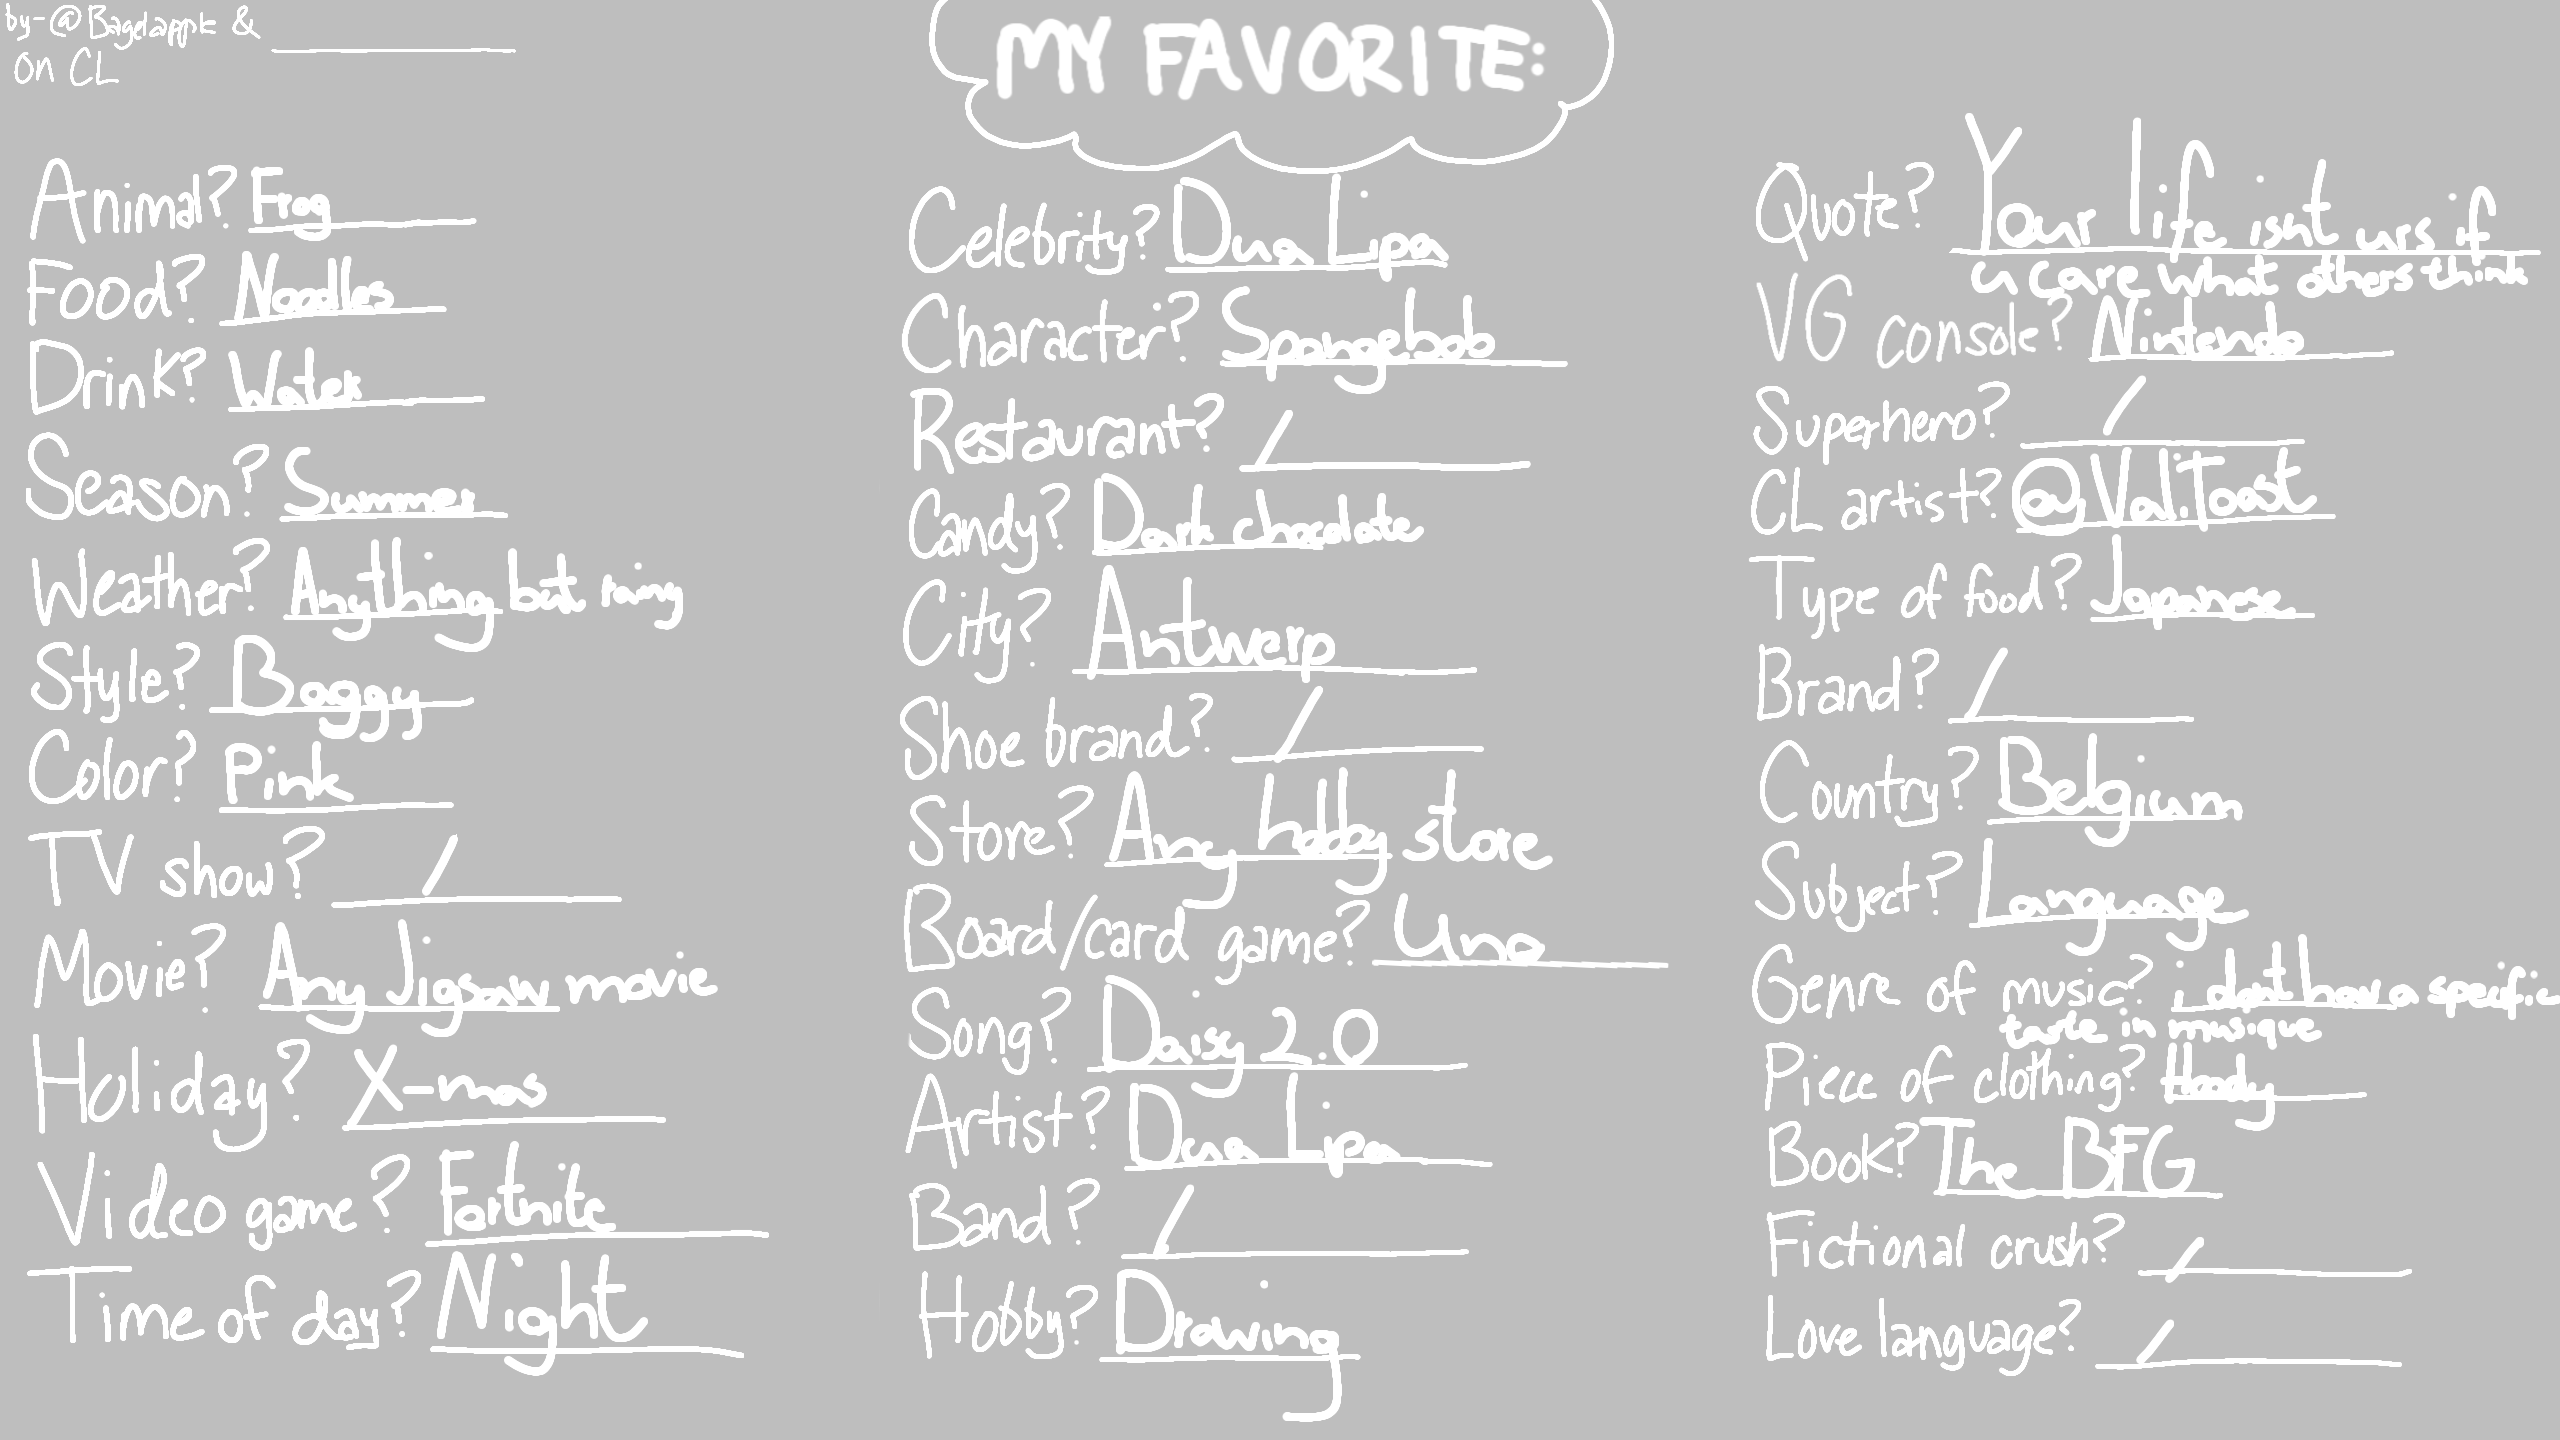 by-@Bagelapple &
on CL
MY FAVORITE:
Animal? Frog
Food? Noodles
Drink? Water
Season? Summer
Weather? Anything but rainy
Style? Baggy
Color? Pink
TV show? /
Movie? Any Jigsaw movie
Holiday? X-mas
Video game? Fortnite
Time of day? Night
Celebrity? Dua Lipa
Character? Spongebob
Restaurant? /
Candy? Dark chocolate
City? Antwerp
Shoe brand? /
Store? Any hobby store
Board/card game? Uno
Song? Daisy 2.0
Artist? Dua Lipa
Band? /
Hobby? Drawing
Quote? Your life isnt urs if
u care what others think
VG console? Nintendo
Superhero? /
CL artist? @Val.Toast
Type of food? Japanese
Brand? /
Country? Belgium
Subject? Language
Genre of music? i dont hav a specific
taste in musique
Piece of clothing? Hoody
Book? The BFG
Fictional crush? /
Love language? /